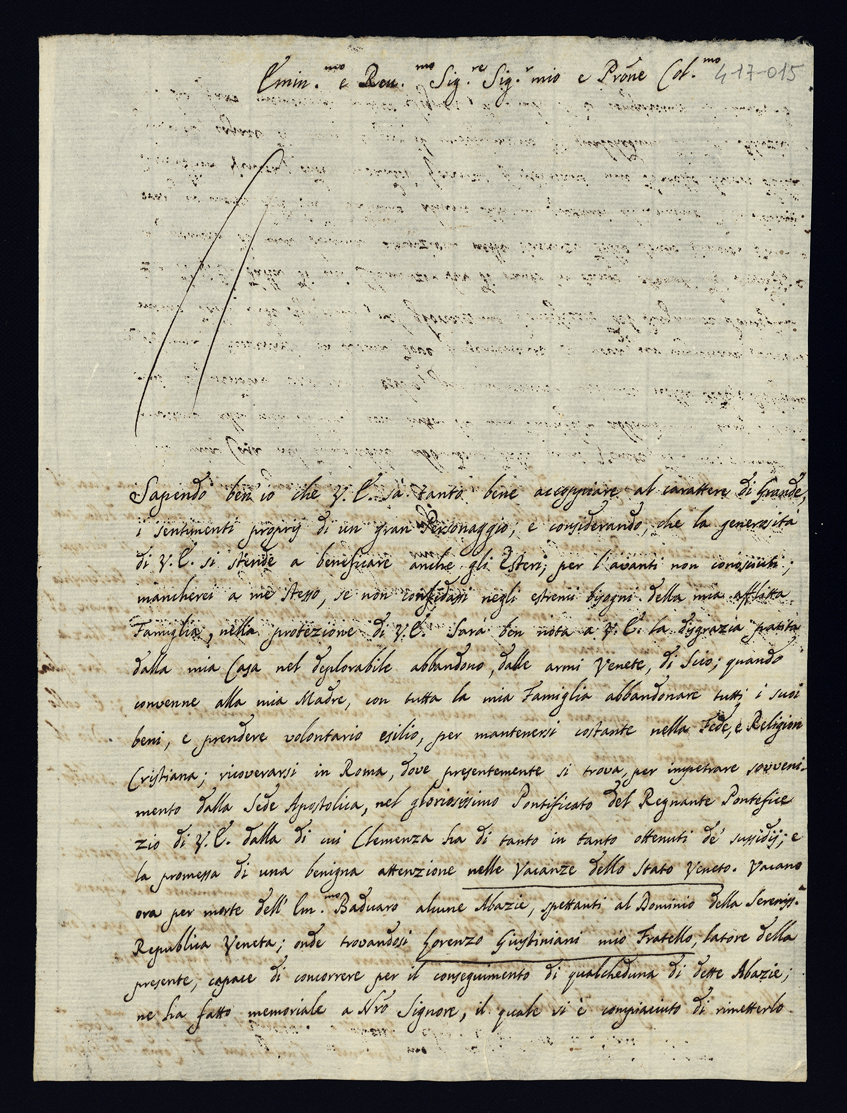 Emin.mo e Reu.mo Sig.re Sig.r mio e Prõne Col.mo
417-015
Sapendo ben io che V.E. sà tanto bene accoppiare al carattere di Grande,
i sentimenti proprij di un gran Personaggio, e considerando, che la generosità
di V.E. si stende a beneficare anche gli Esteri, per l'avanti non conosciuti;
mancherei a me stesso, se non confidassi negli estremi bisogni della mia afflitta
Famiglia, nella protezione di V.E. Sarà ben nota a V.E. la disgrazia patita
dalla mia Casa nel deplorabile abbandono, dalle armi Venete, di Scio; quando
convenne alla mia Madre, con tutta la mia Famiglia abbandonare tutti i suoi
beni, e prendere volontario esilio, per mantenersi costante nella Fede, e Religion
Cristiana; ricoverarsi in Roma, dove presentemente si trova, per impetrare sovveni-
mento dalla Sede Apostolica, nel gloriosissimo Pontificato del Regnante Pontefice
zio di V.E. dalla di cui Clemenza ha di tanto in tanto ottenuti de' sussidij; e
la promessa di una benigna attenzione nelle Vacanze dello Stato Veneto. Vacano
ora per morte dell' Em.mo Baduaro alcune Abazie, spettanti al Dominio della Sereniss.a
Republica Veneta; onde trovandosi Lorenzo Giustiniani mio Fratello, latore della
presente, capace di concorrere per il conseguimento di qualcheduna di dette Abazie;
ne ha fatto memoriale a Nrõ Signore, il quale si è compiaciuto di rimetterlo